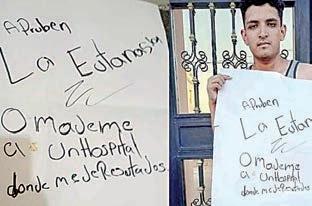 APruben
La Eutanasia
O Mademe
a UnHospital
donde medeResutados.
APruben
La Eutanasia
O Mademe
a UnHospital
donde medeResutados